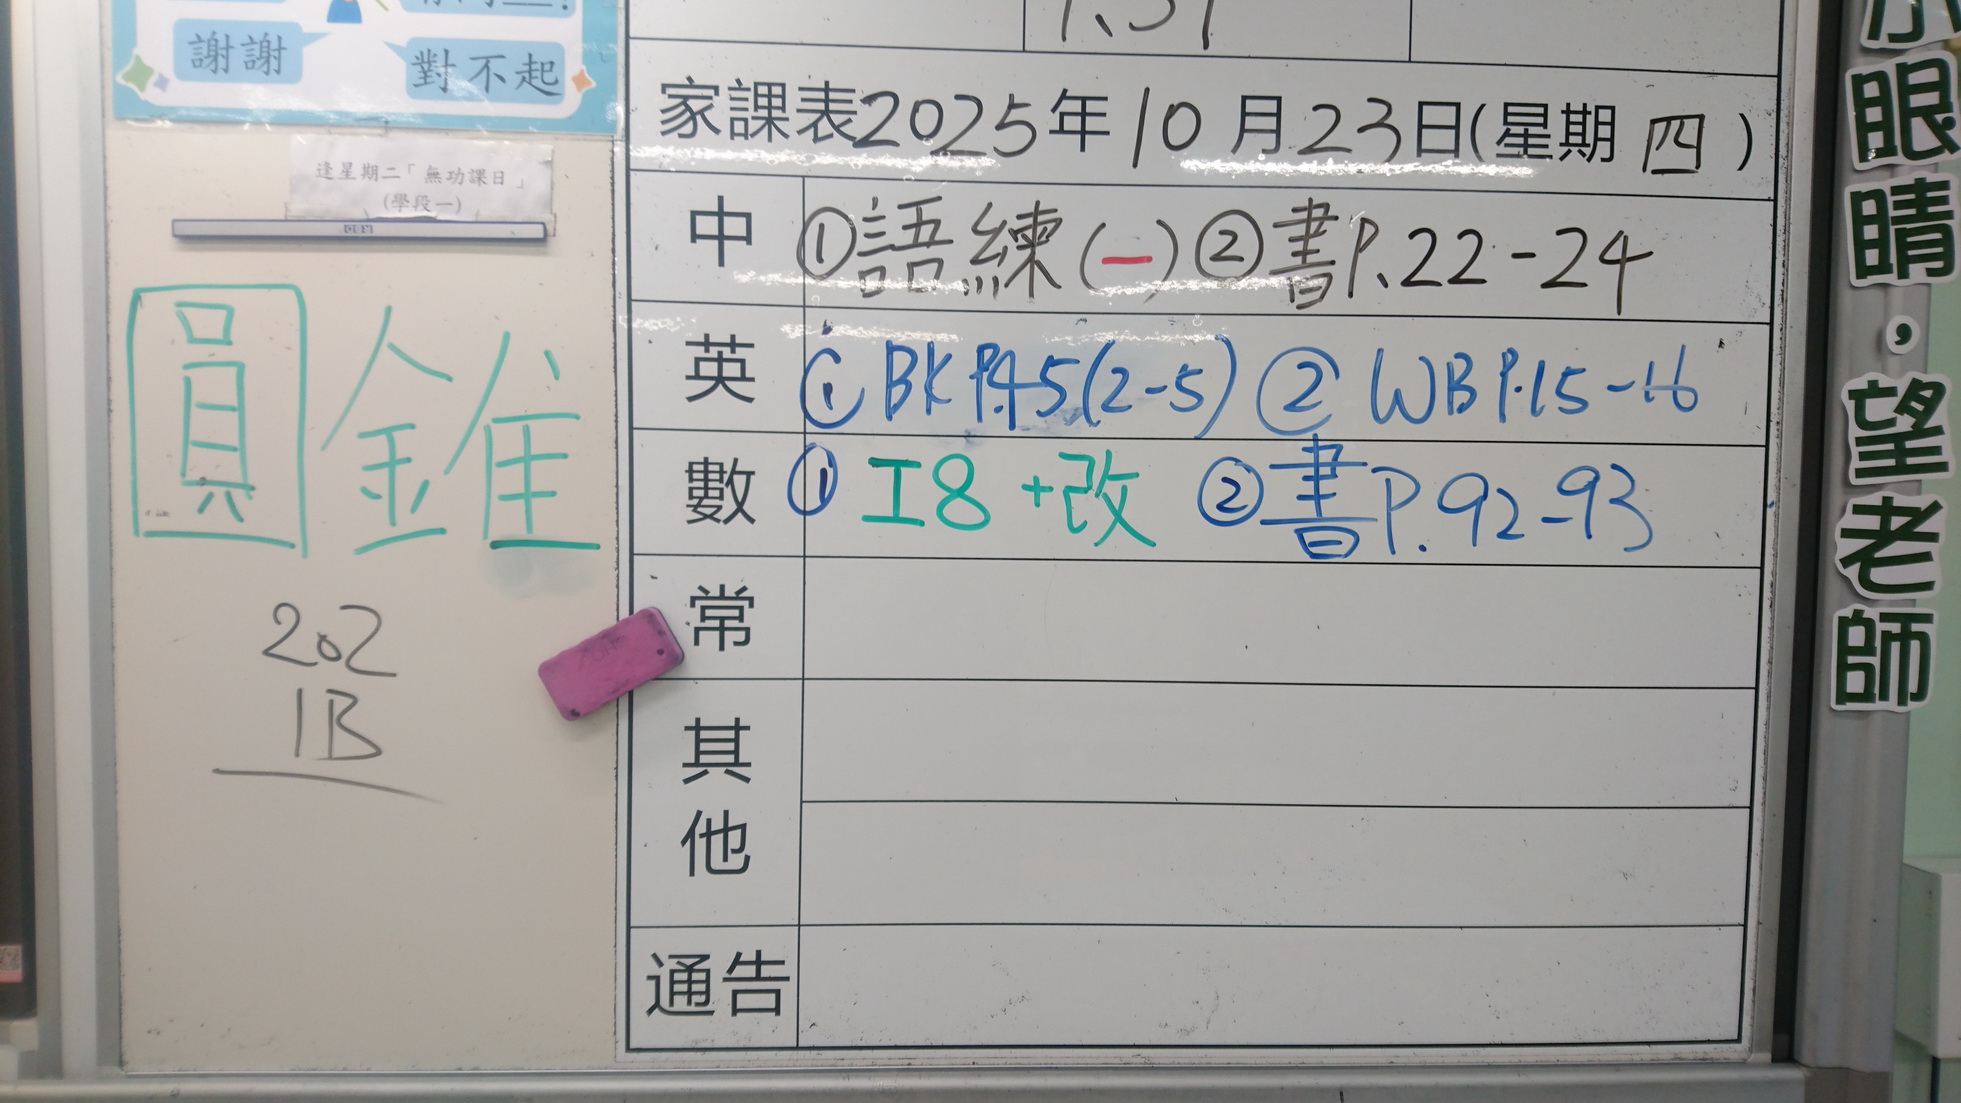 謝謝
對不起
家課表2025年10月23日(星期四)
逢星期二「無功課日」
(學段一)
中 ①語練(一)②書P.22-24
英 ①BK P.45(2-5) ② WB P.15-16
數 ① 工8+改 ②書P.92-93
常
其他
通告
圓錐
202
1B
眼睛,望老師